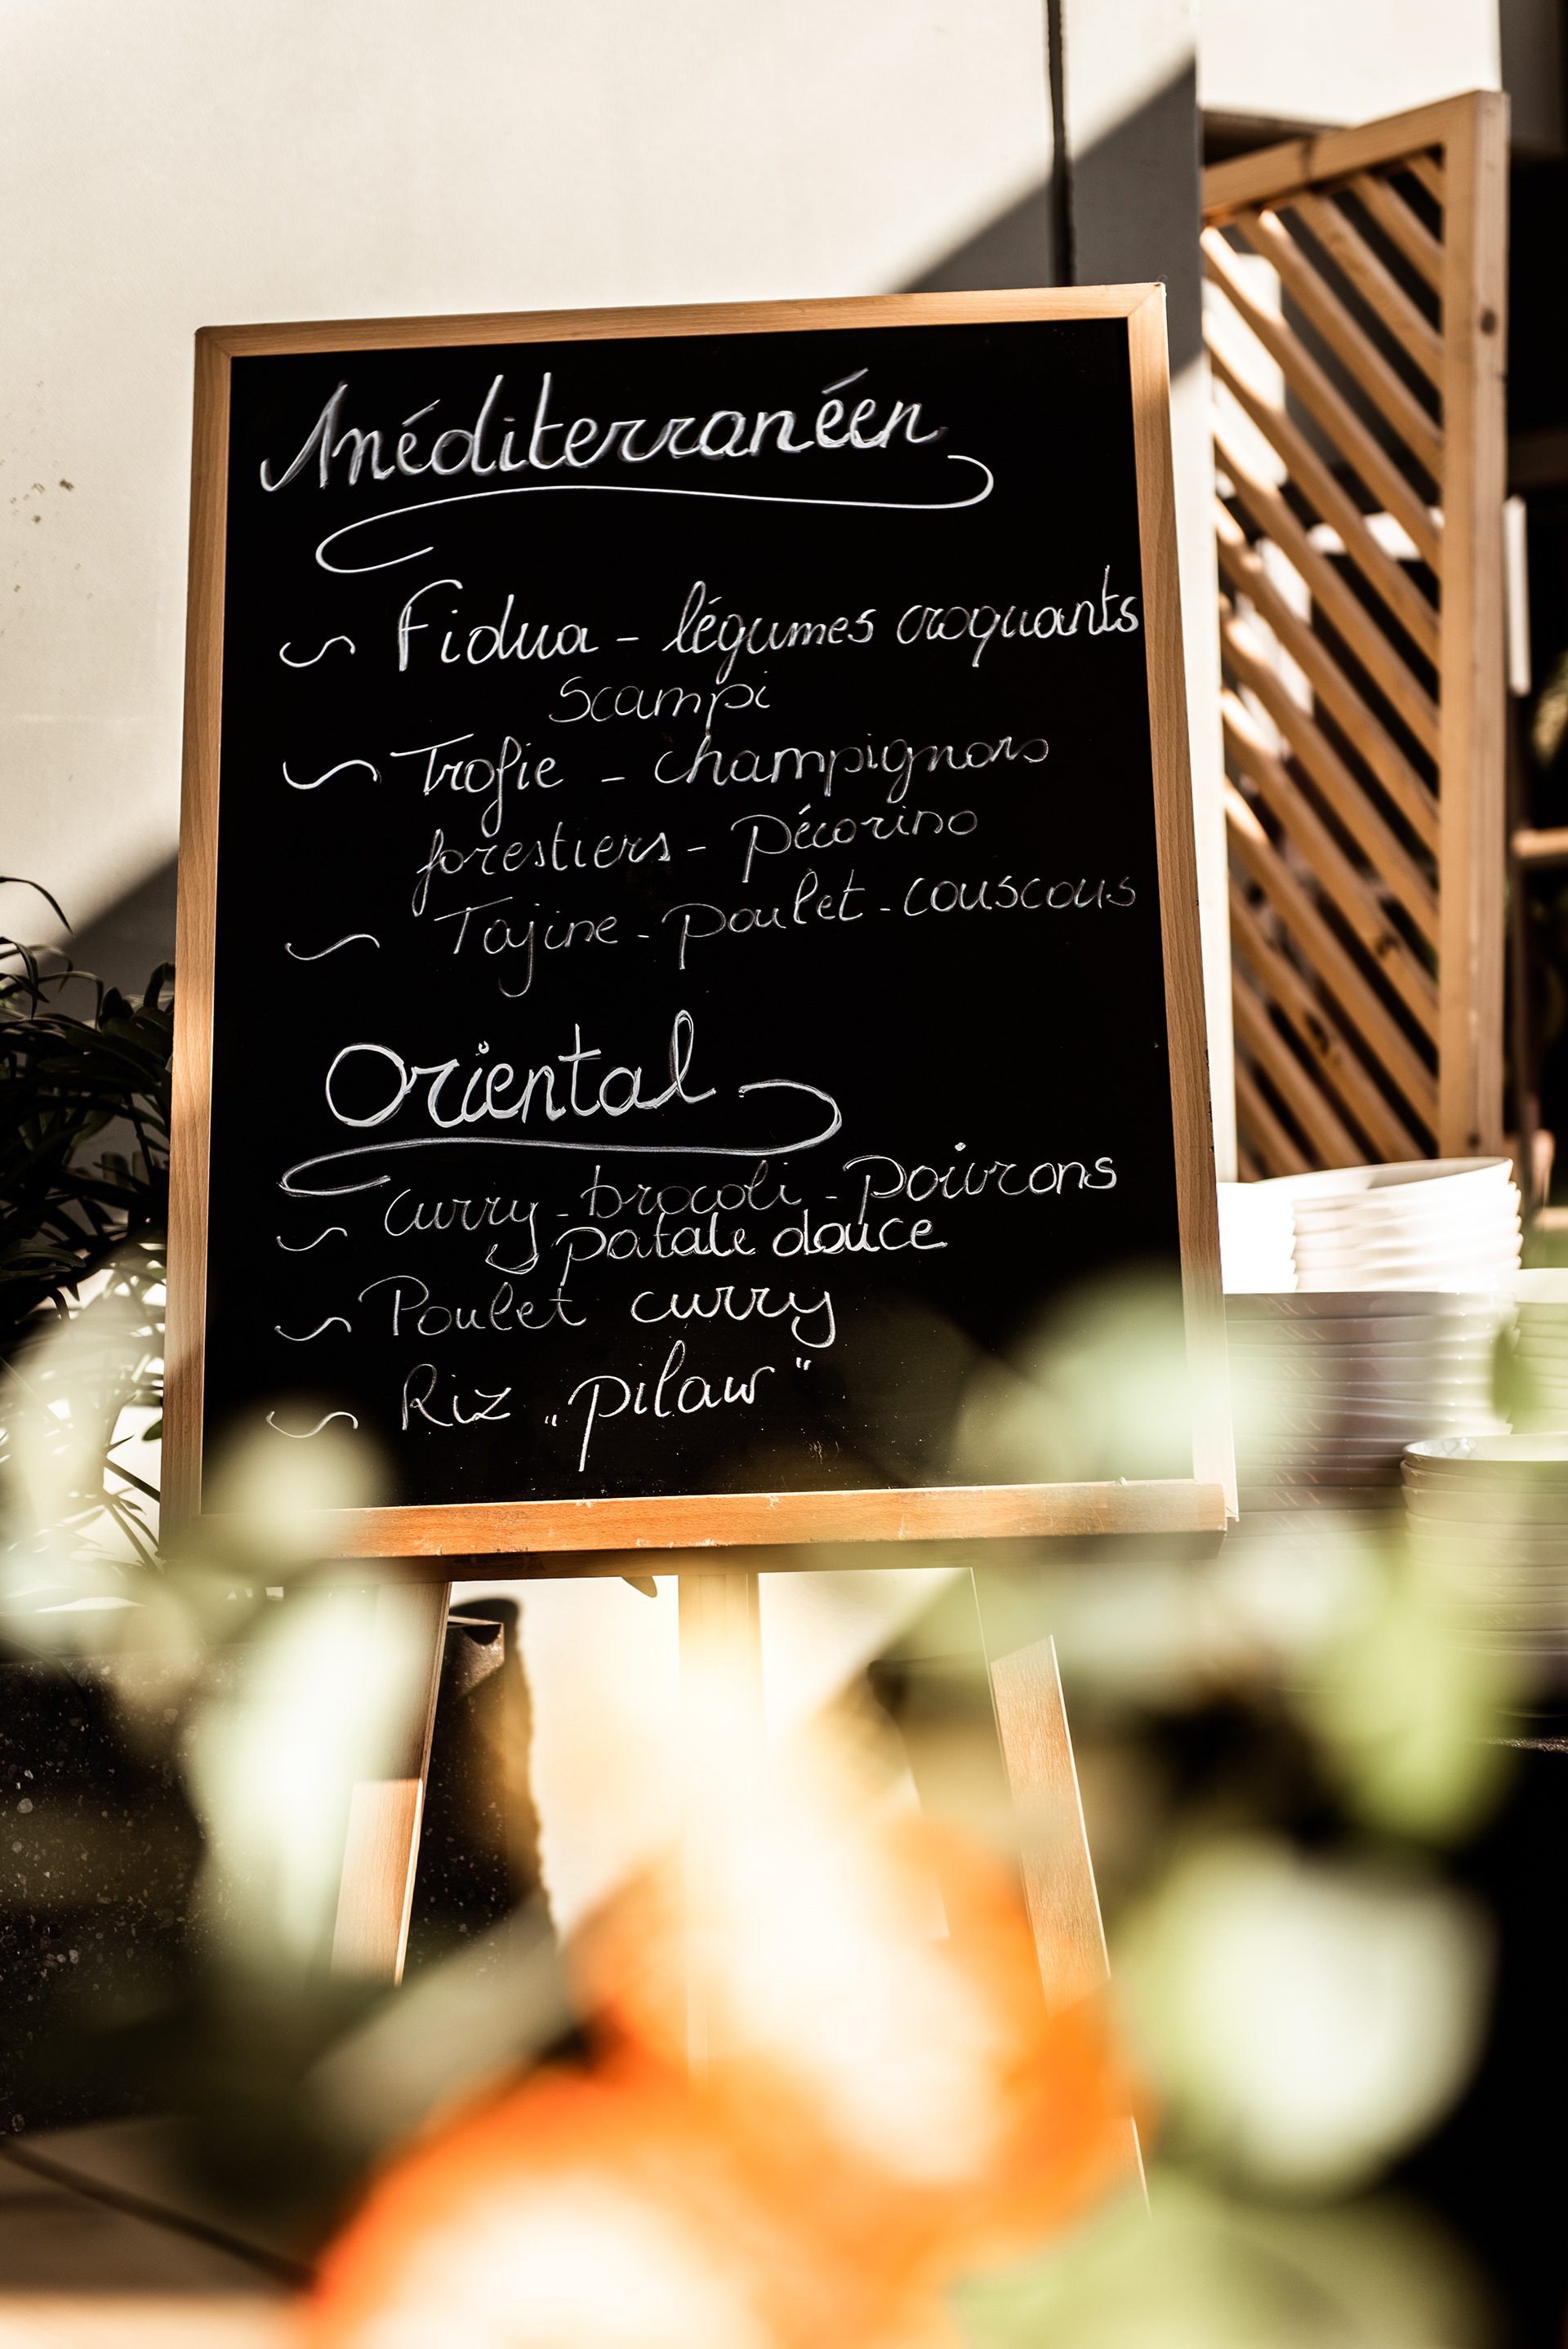 Méditerranéen
Fidua - légumes croquants
Scampi
Trofie - champignons
forestiers - Pécorino
Tajine - poulet - couscous
Oriental
Curry - brocoli - poivrons
patate douce
Poulet curry
Riz „pilaw"